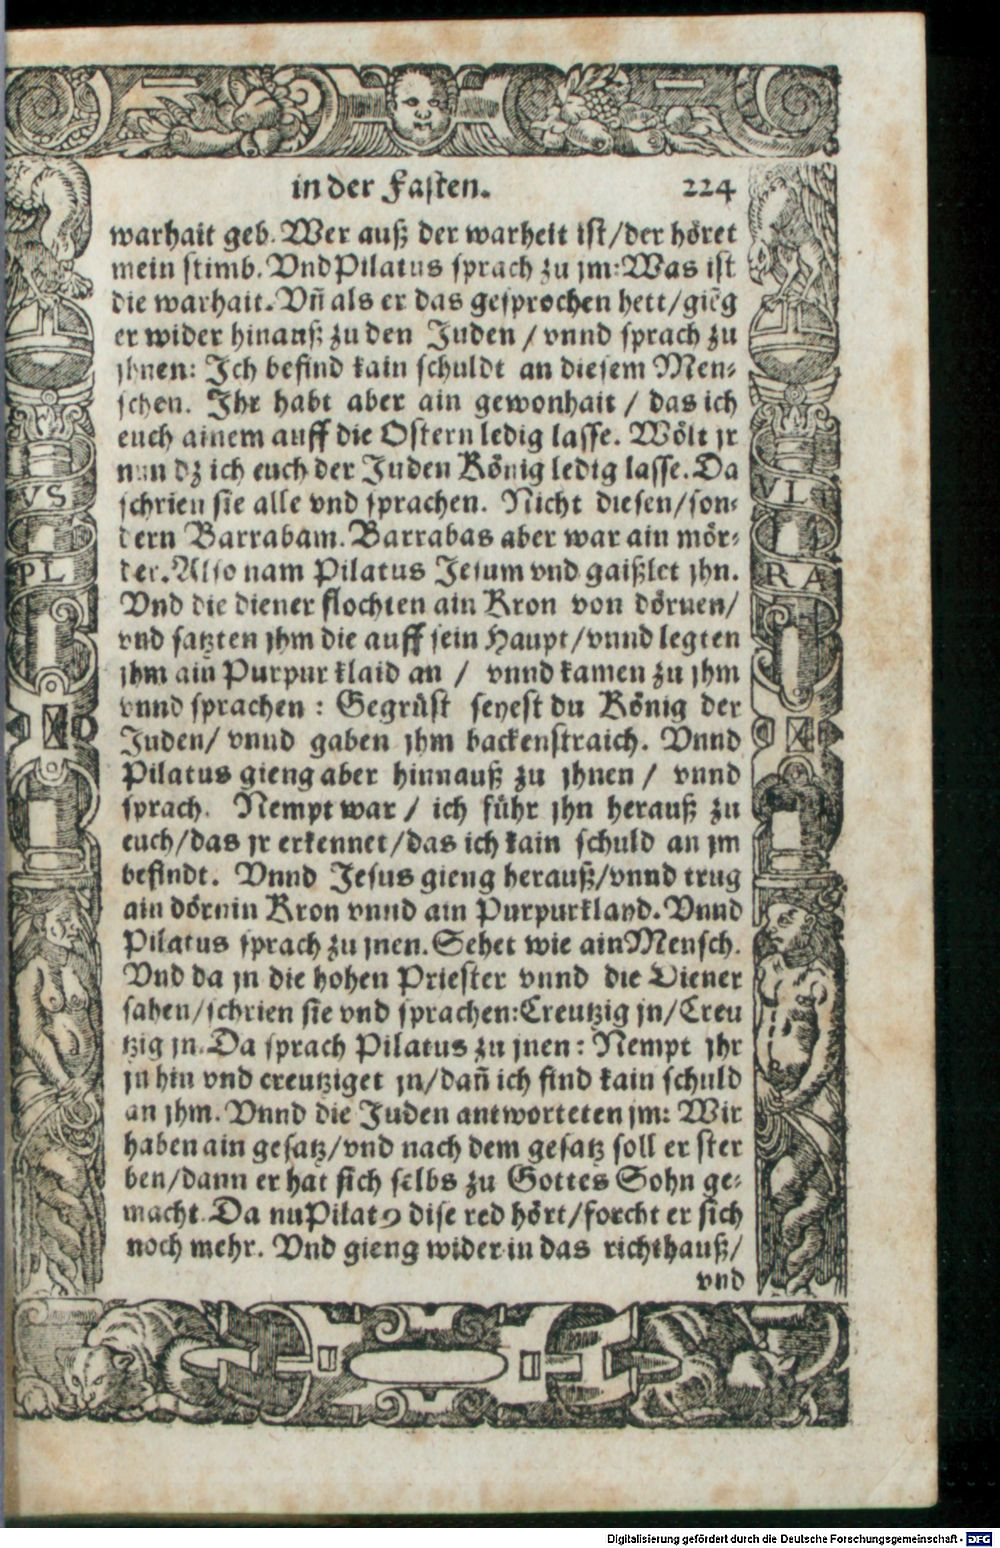 in der Fasten. 224
warhait geb. Wer auß der warheit ist/der höret
mein stimb. VndPilatus sprach zu jm: Was ist
die warhait. Vñ als er das gesprochen hett/giēg
er wider hinauß zu den Juden / vnnd sprach zu
jhnen: Ich befind kain schuldt an diesem Men⸗
schen. Ihr habt aber ain gewonhait / das ich
euch ainem auff die Ostern ledig lasse. Wölt jr
nun dz ich euch der Juden König ledig lasse. Da
schrien sie alle vnd sprachen. Nicht diesen/son⸗
dern Barrabam. Barrabas aber war ain mör⸗
der. Also nam Pilatus Jesum vnd gaißlet jhn.
Vnd die diener flochten ain Kron von dörnen/
vnd satzten jhm die auff sein Haupt/vnnd legten
jhm ain Purpur klaid an / vnnd kamen zu jhm
vnnd sprachen : Gegrüst seyest du König der
Juden/ vnnd gaben jhm backenstraich. Vnnd
Pilatus gieng aber hinnauß zu jhnen / vnnd
sprach. Nempt war / ich führ jhn herauß zu
euch/das jr erkennet/das ich kain schuld an jm
befindt. Vnnd Jesus gieng herauß/vnnd trug
ain dörnin Kron vnnd ain Purpurklayd. Vnnd
Pilatus sprach zu jnen. Sehet wie ain Mensch.
Vnd da jn die hohen Priester vnnd die Diener
sahen/schrien sie vnd sprachen: Creutzig jn/Creu
tzig jn. Da sprach Pilatus zu jnen: Nempt jhr
jn hin vnd creutziget jn/dañ ich find kain schuld
an jhm. Vnnd die Juden antworteten jm: Wir
haben ain gesatz/vnd nach dem gesatz soll er ster
ben/dann er hat sich selbs zu Gottes Sohn ge⸗
macht. Da nu Pilatꝰ dise red hört/forcht er sich
noch mehr. Vnd gieng wider in das richthauß/
vnd
VS
PL
VL
RA
Digitalisierung gefördert durch die Deutsche Forschungsgemeinschaft - DFG